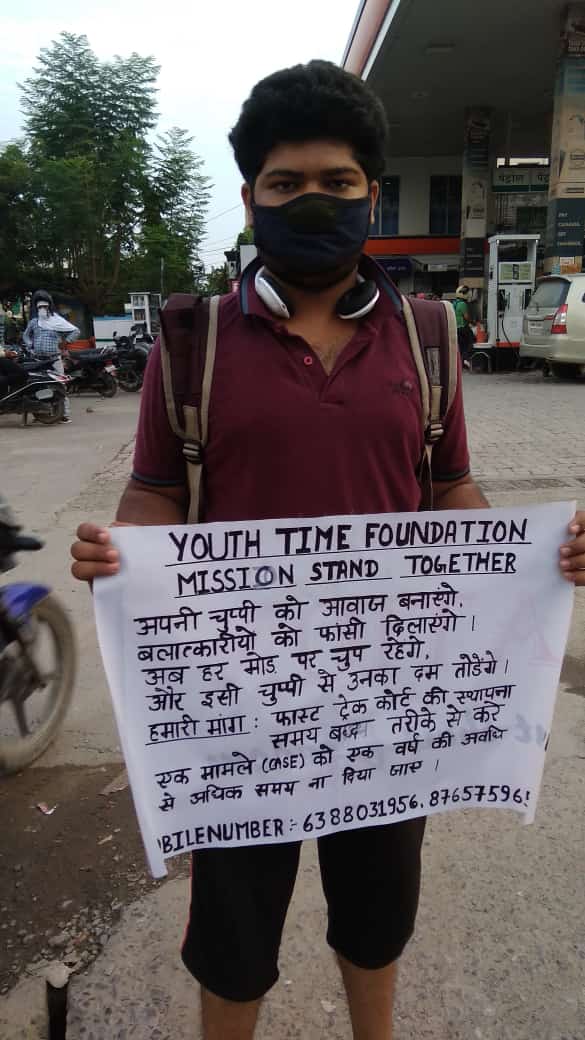 YOUTH TIME FOUNDATION
MISSION STAND TOGETHER
अपनी चुप्पी को आवाज बनाएंगे,
बलात्कारीयो को फांसी दिलाएंगे ।
अब हर मोड पर चुप रहेगे,
और इसी चुप्पी से उनका दम तोडेंगे ।
हमारी मांग : फास्ट ट्रेक कोर्ट की स्थापना
समय बध्य तरीके से करे
एक मामले (CASE) को एक वर्ष की अवधि
से अधिक समय ना दिया जाए ।
BILENUMBER :- 6388031956, 87657596
पेट्रोल